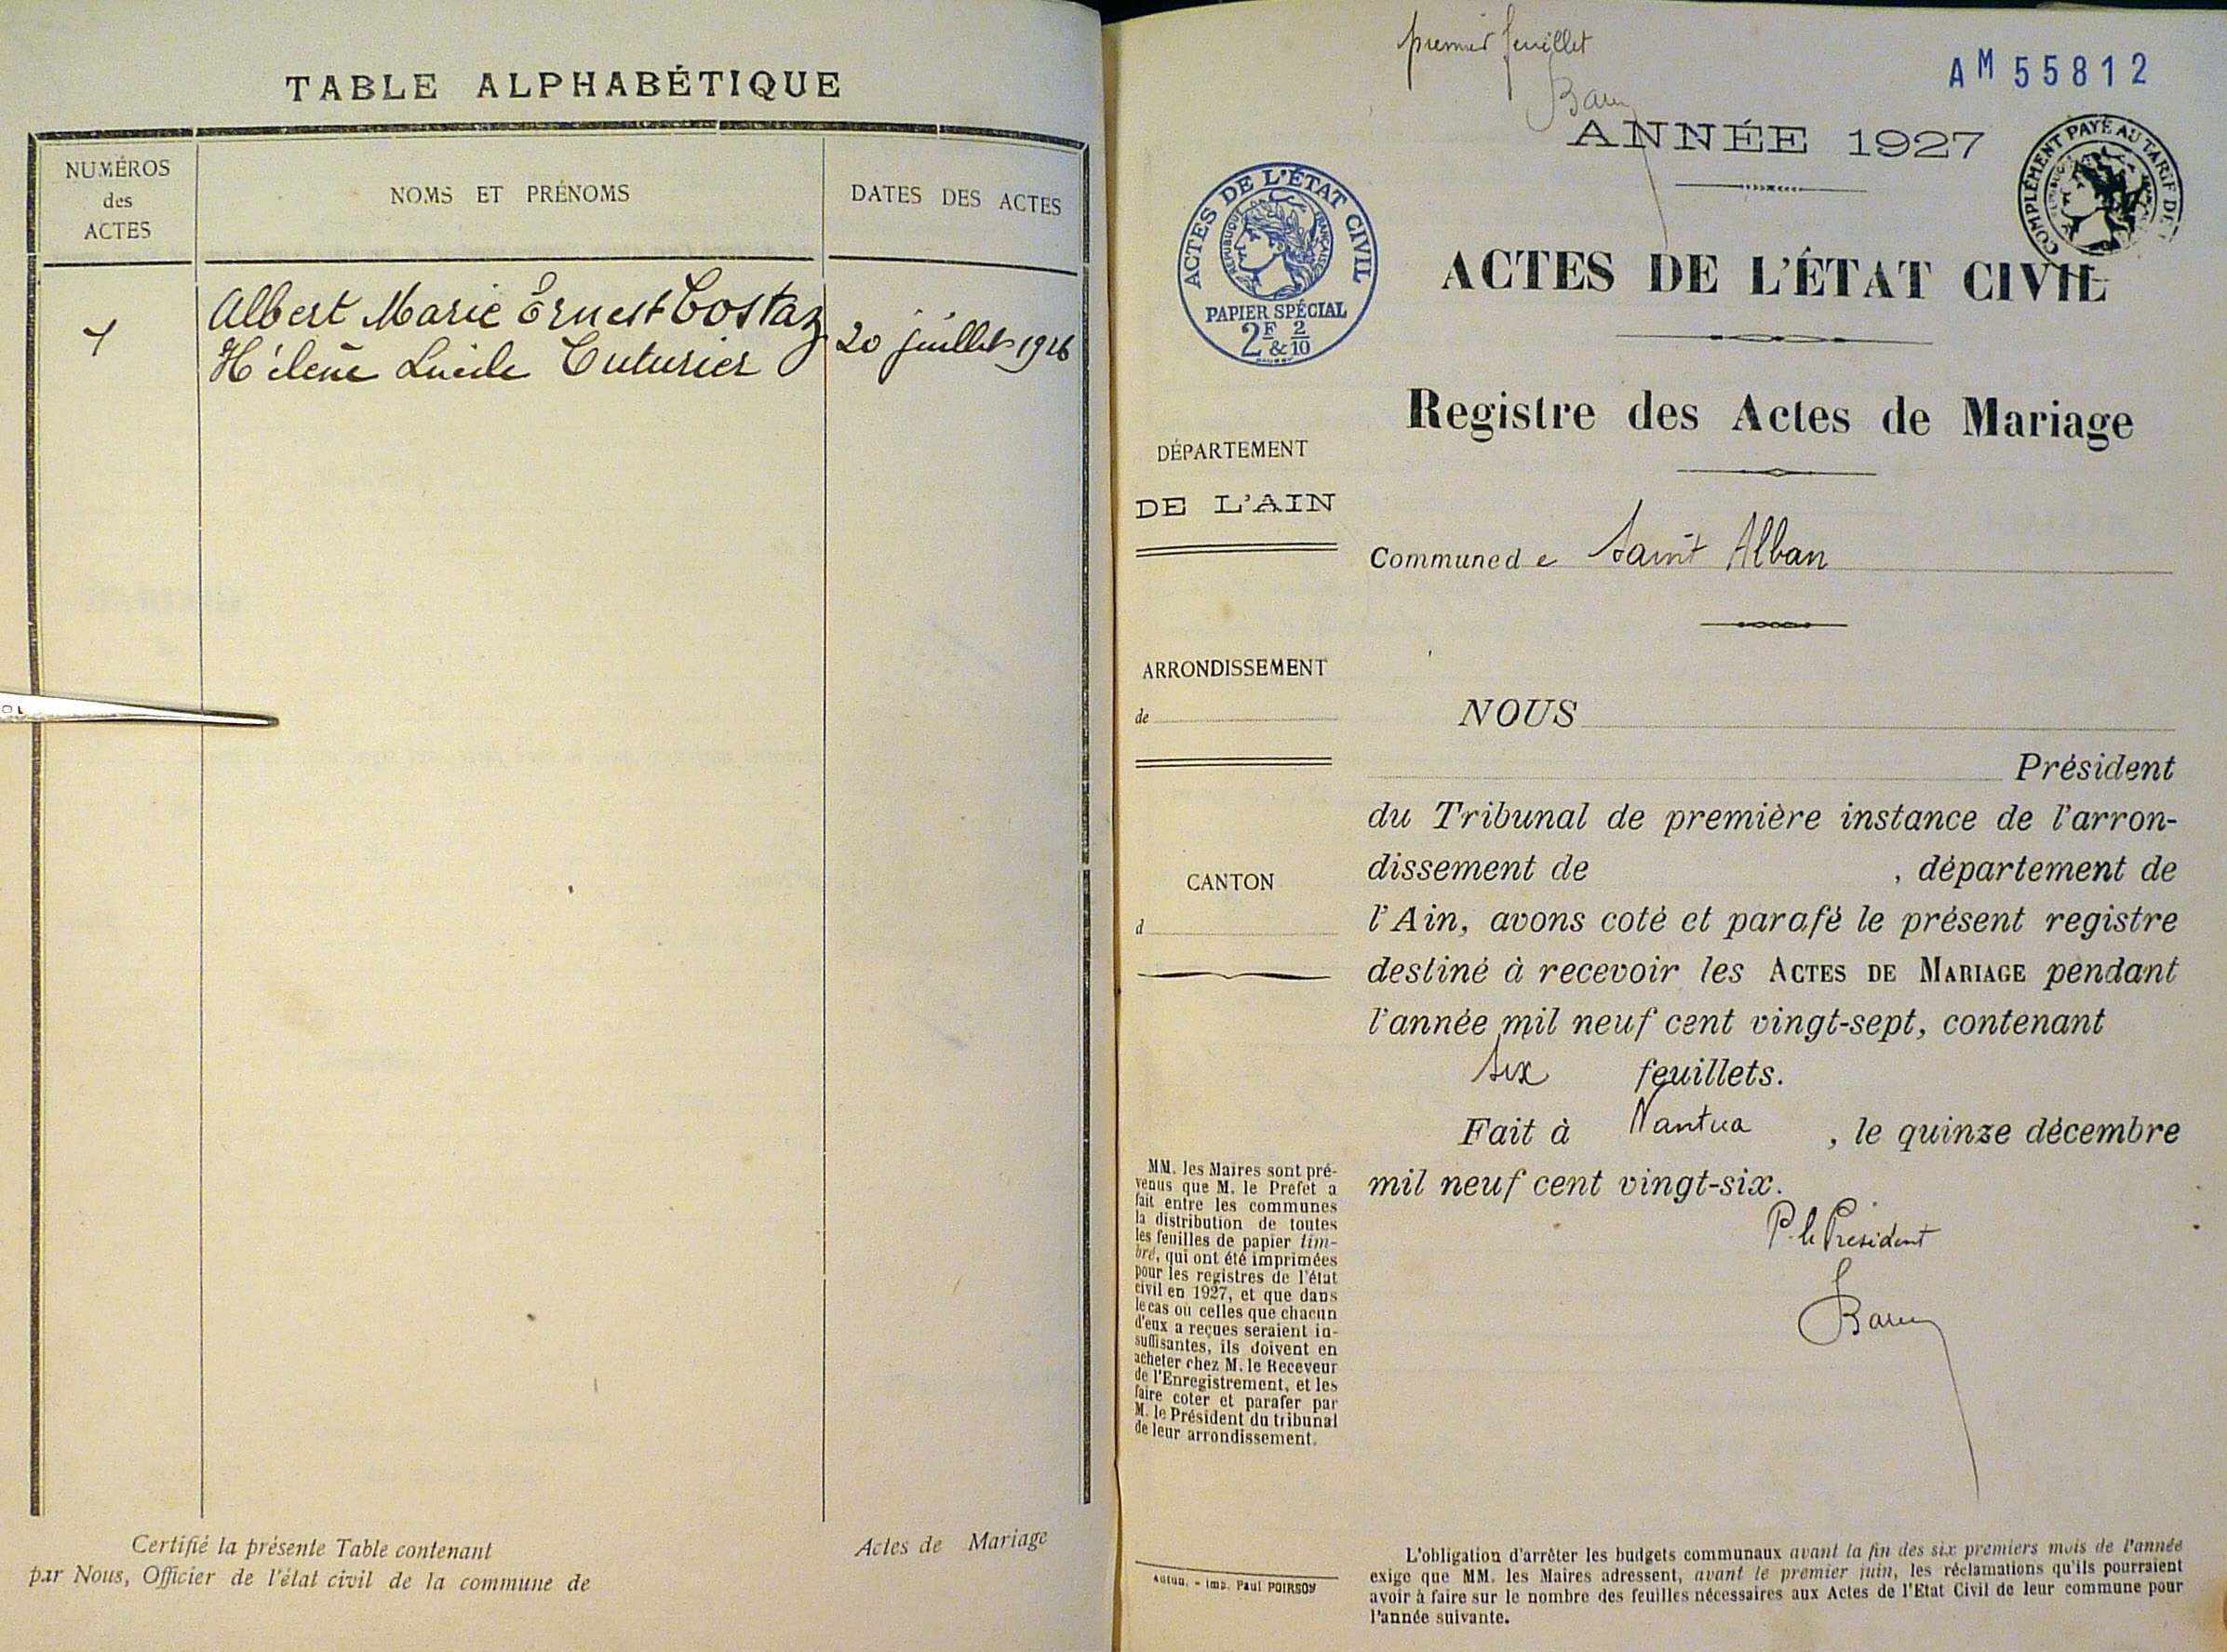 TABLE ALPHABÉTIQUE
NUMÉROS
des
ACTES
NOMS ET PRÉNOMS
DATES DES ACTES
1
Albert Marie Ernest Costaz
Hélène Lucile Cuturier
20 juillet 1926
Certifié la présente Table contenant
Actes de Mariage
par Nous, Officier de l'état civil de la commune de
premier feuillet
AM 55812
ANNÉE 1927
COMPLÉMENT PAYÉ AU TARIF DE
ACTES DE L'ÉTAT CIVIL
RÉPUBLIQUE FRANÇAISE
PAPIER SPÉCIAL
2F & 2/10
ACTES DE L'ÉTAT CIVIL
Registre des Actes de Mariage
DÉPARTEMENT
DE L'AIN
Commune de Saint Alban
ARRONDISSEMENT
de
CANTON
d
NOUS
Président
du Tribunal de première instance de l'arron-
dissement de , département de
l'Ain, avons coté et parafé le présent registre
destiné à recevoir les ACTES DE MARIAGE pendant
l'année mil neuf cent vingt-sept, contenant
six feuillets.
Fait à Nantua , le quinze décembre
mil neuf cent vingt-six.
P. le Président
MM. les Maires sont pré-
venus que M. le Préfet a
fait entre les communes
la distribution de toutes
les feuilles de papier tim-
bré, qui ont été imprimées
pour les registres de l'état
civil en 1927, et que dans
le cas où celles que chacun
d'eux a reçues seraient in-
suffisantes, ils doivent en
acheter chez M. le Receveur
de l'Enregistrement, et les
faire coter et parafer par
M. le Président du tribunal
de leur arrondissement.
- Imp. Paul POIRSON
L'obligation d'arrêter les budgets communaux avant la fin des six premiers mois de l'année
exige que MM. les Maires adressent, avant le premier juin, les réclamations qu'ils pourraient
avoir à faire sur le nombre des feuilles nécessaires aux Actes de l'Etat Civil de leur commune pour
l'année suivante.